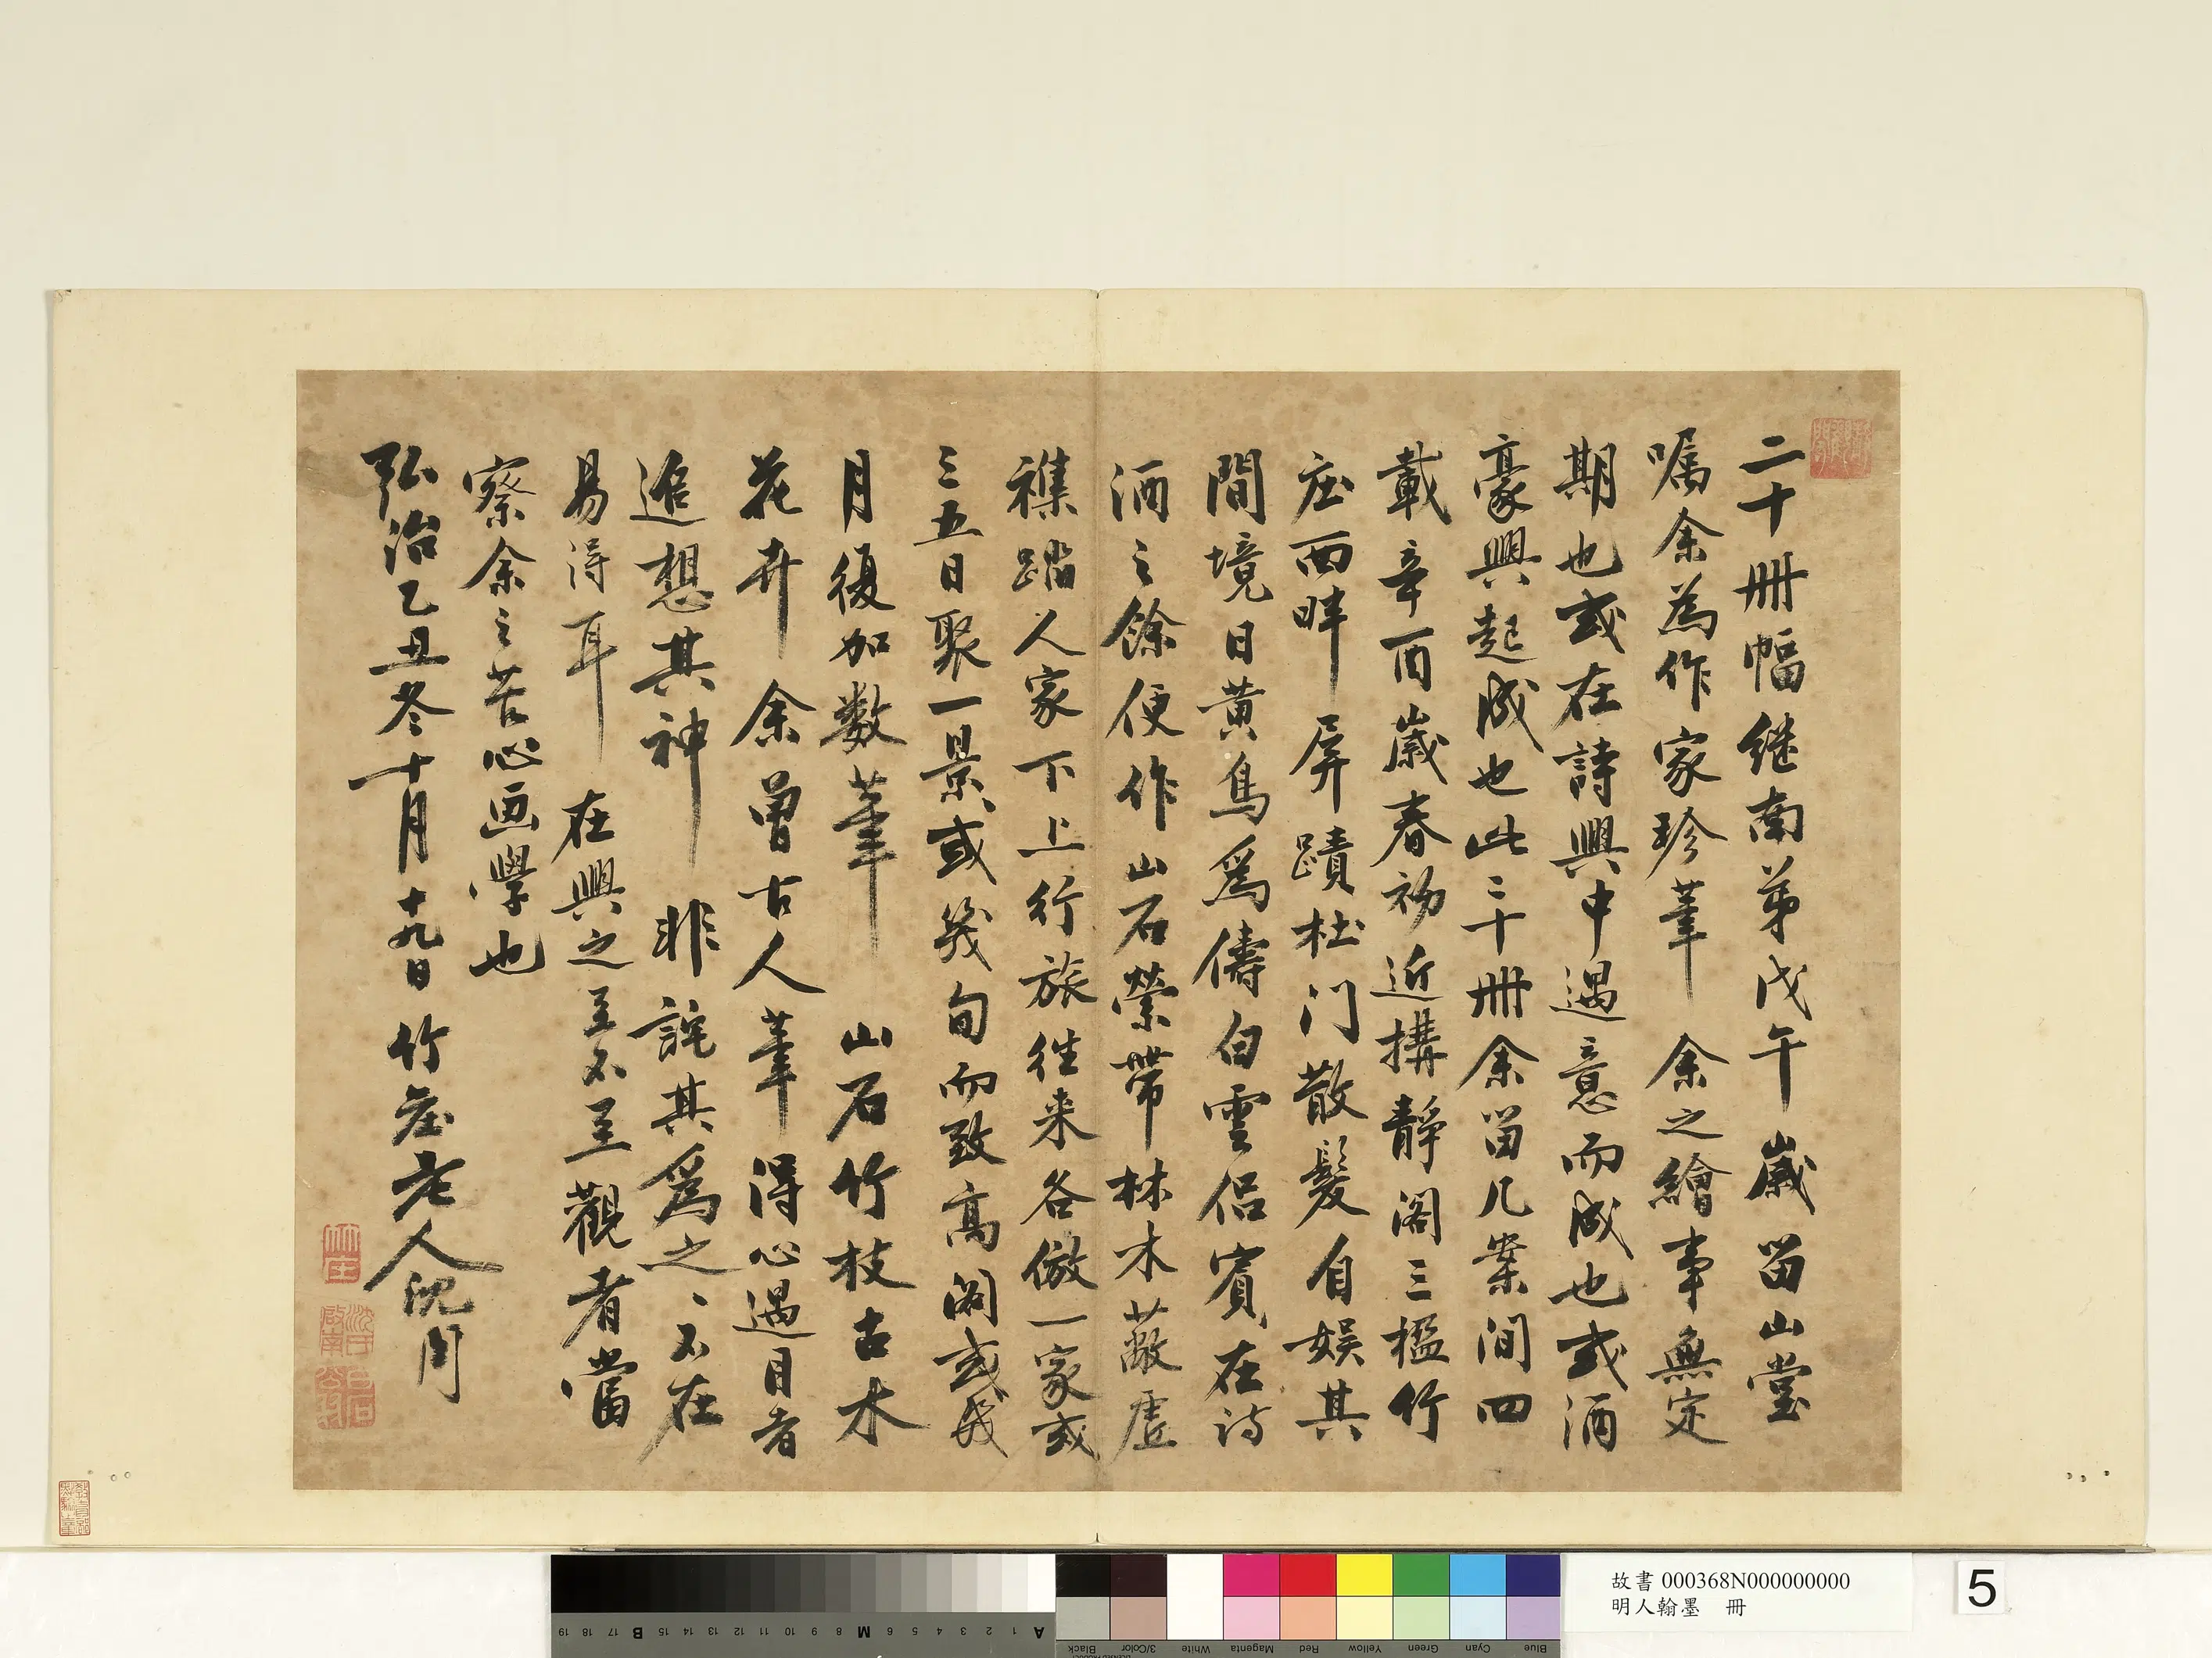 二十冊幅継南弟戊午歲留山堂
囑余為作家珍筆余之繪事無定
期也或在詩興中遇意而成也或酒
豪興起成也此二十冊余留几案間四
載辛酉歲春初近搆靜閣三楹竹
庄西畔屏蹟杜门散髮自娛其
間境日黄鳥為儔白雲侶賓在詩
酒之餘便作山石縈帶林木蔽虛
樵踏人家下上行旅往来各倣一家或
三五日聚一景或幾旬而致高閣或幾
月復加数筆山石竹枝古木
花卉余曾古人筆得心遇目者
追想其神非詫其爲之之不在
易得耳在興之至不至觀者當
察余之苦心画學也
弘治乙丑冬十月十九日竹庄老人沈周
沈氏啟南
白石翁
故書 000368N000000000
明人翰墨 冊
5
A 1 2 3 4 5 6 M 8 9 10 11 12 13 14 15 B 17 18 19
Blue Cyan Green Yellow Red Magenta White 3/Color Black